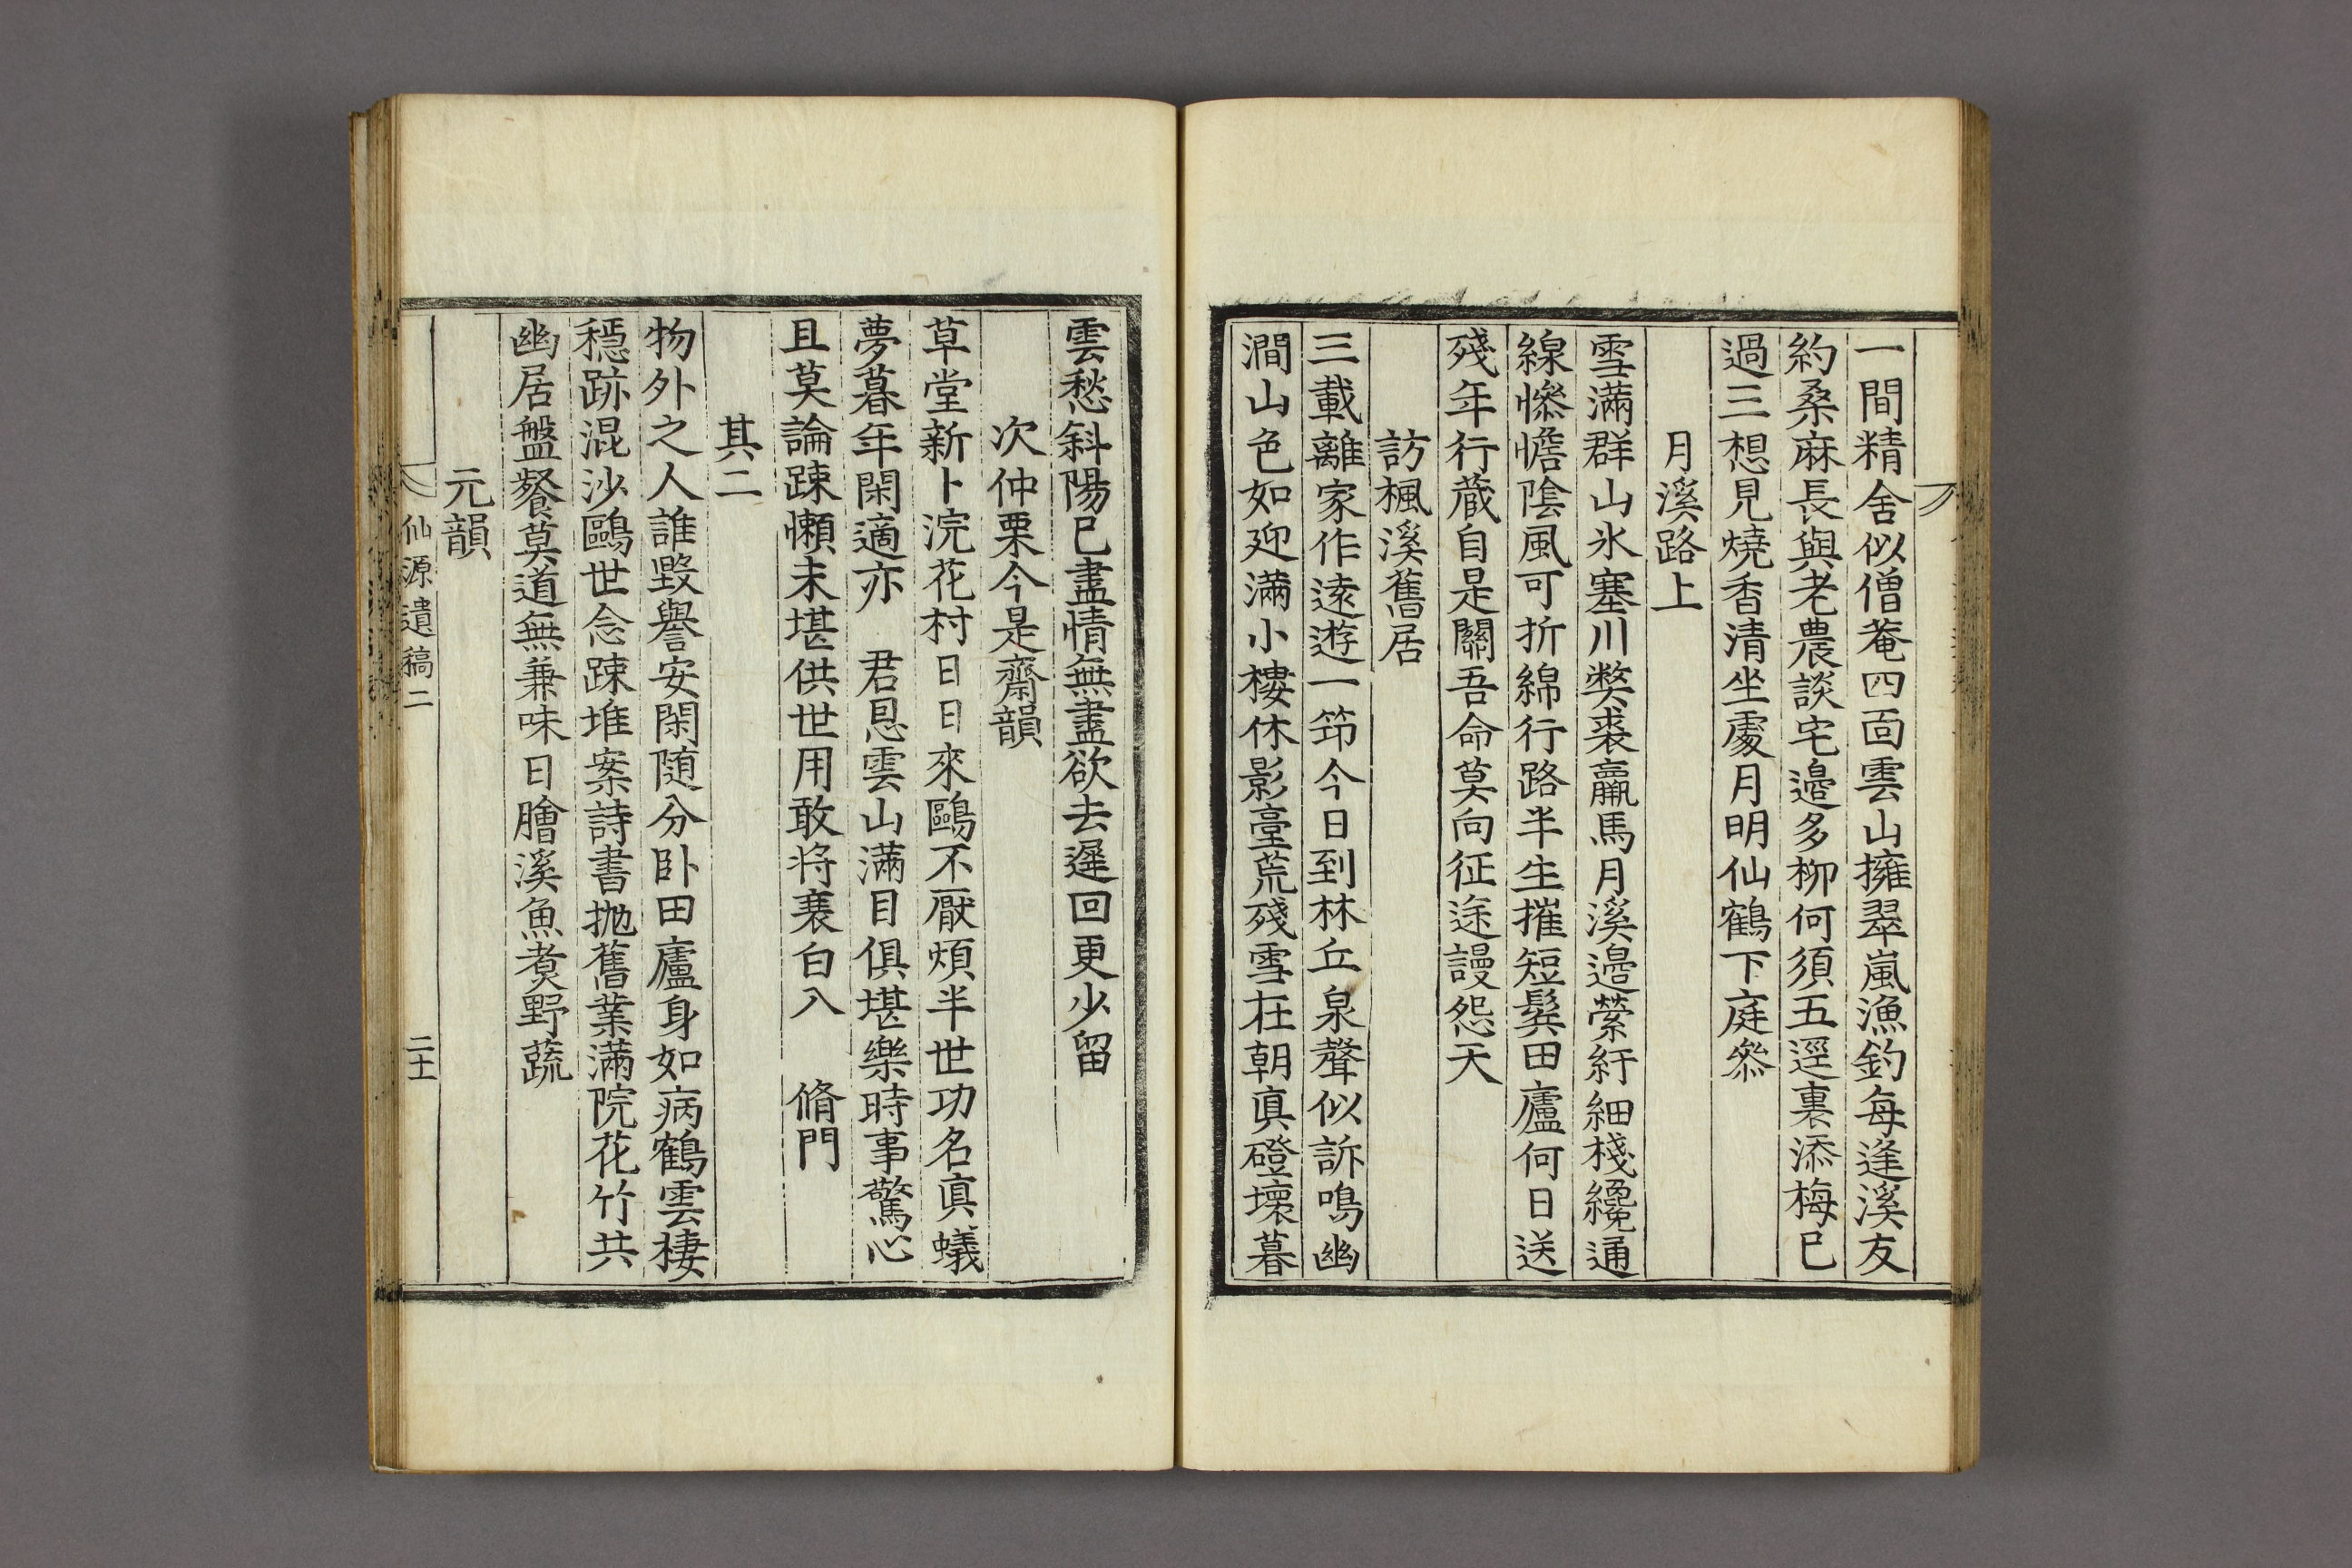 一間精舍似僧菴四面雲山擁翠嵐漁釣每逢溪友
約桑麻長與老農談宅邊多柳何須五逕裏添梅已
過三想見燒香清坐處月明仙鶴下庭叅
月溪路上
雪滿群山氷塞川獘裘羸馬月溪邊縈紆細棧纔通
線慘憺陰風可折綿行路半生摧短鬂田廬何日送
殘年行蔵自是關吾命莫向征途謾怨天
訪楓溪舊居
三載離家作遠遊一筇今日到林丘泉聲似訴鳴幽
澗山色如迎滿小樓休影臺荒殘雪在朝眞磴壞暮
雲愁斜陽已盡情無盡欲去遲回更少留
次仲栗今是齋韻
草堂新卜浣花村日日來鷗不厭煩半世功名眞蟻
夢暮年閑適亦 君恩雲山滿目俱堪樂時事驚心
且莫論踈懶未堪供世用敢将衰白入 脩門
其二
物外之人誰毀譽安閑随分卧田廬身如病鶴雲棲
穩跡混沙鷗世念踈堆案詩書抛舊業滿院花竹共
幽居盤餐莫道無兼味日膾溪魚煑野蔬
元韻
仙源遺稿二
二十一